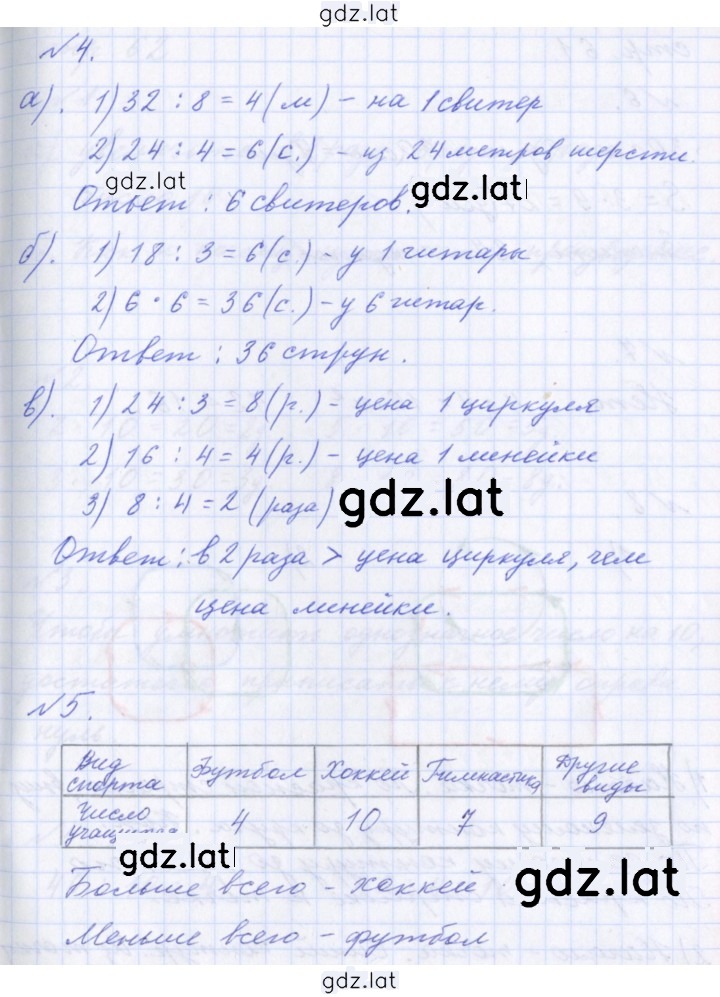 gdz.lat
№4.
а). 1) 32 : 8 = 4 (м) - на 1 свитер
2) 24 : 4 = 6 (с.) - из 24 метров шерсти.
gdz.lat gdz.lat
Ответ : 6 свитеров.
б). 1) 18 : 3 = 6 (с.) - у 1 гитары
2) 6 · 6 = 36 (с.) - у 6 гитар.
Ответ : 36 струн.
в). 1) 24 : 3 = 8 (р.) - цена 1 циркуля
2) 16 : 4 = 4 (р.) - цена 1 линейки
3) 8 : 4 = 2 (раза) gdz.lat
Ответ : в 2 раза > цена циркуля, чем
цена линейки.
№5.
Вид спорта Футбол Хоккей Гимнастика Другие виды
Число учащихся 4 10 7 9
gdz.lat gdz.lat
Больше всего - хоккей
Меньше всего - футбол
gdz.lat